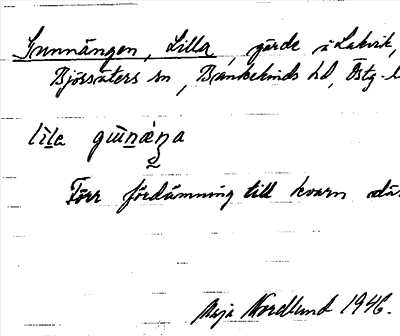 Sunnängen, Lilla, gärde i Lakvik,
Björsäters sn, Bankekinds hd, Östg.
lila
Förr fördämning till kvarn där
Maja Nordlund 1946.